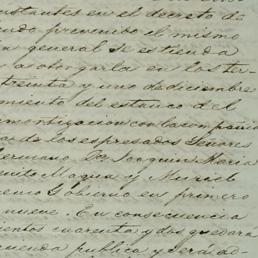 nstantes en el decreto de
endo prevenido el mismo
en general se estienda
a otorgarla en los ter-
treinta y uno de diciembre
miento del estanco del
amortizacion con la compañia
los espresados Señores
Germano La Joaquin Maria
enito Maqua y Muriel
emo Gobierno en primero
nueve. En consecuencia
ientos cuarenta y dos quedará
cienda publica y será ad-